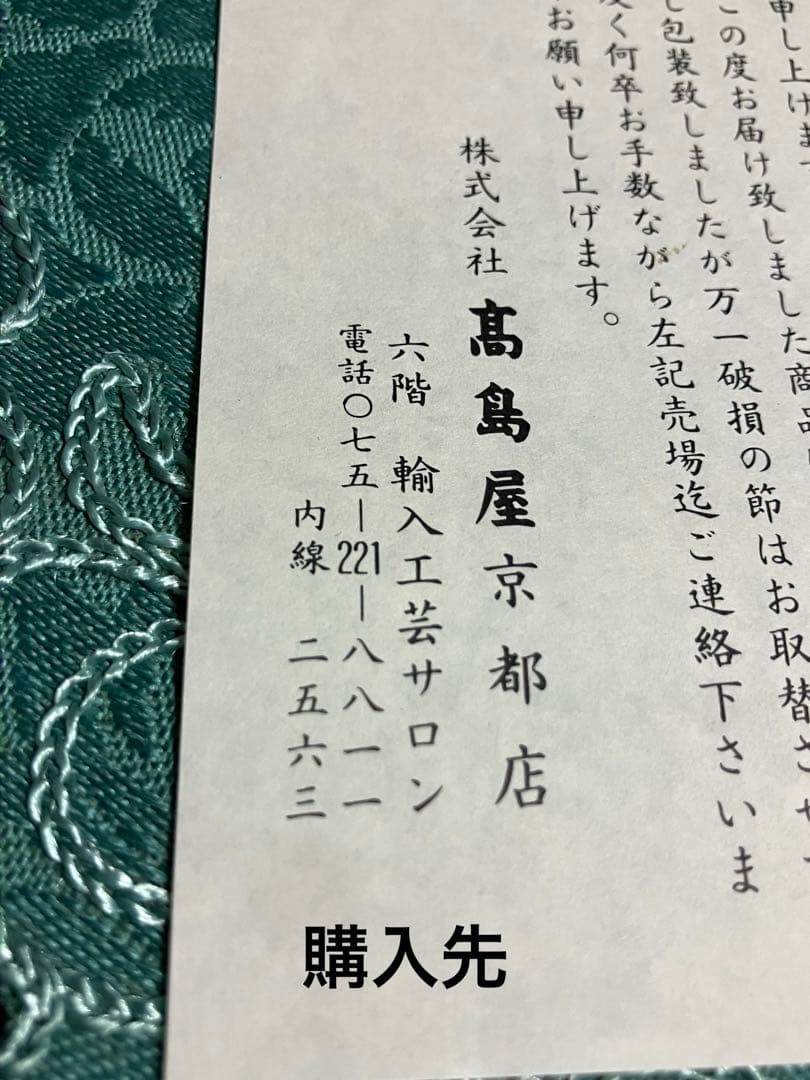 申し上げます
この度お届け致しました商品
し包装致しましたが万一破損の節はお取替させ
く何卒お手数ながら左記売場迄ご連絡下さいま
お願い申し上げます。
株式会社 髙島屋京都店
六階 輸入工芸サロン
電話〇七五―221―八八一一
内線 二五六三
購入先